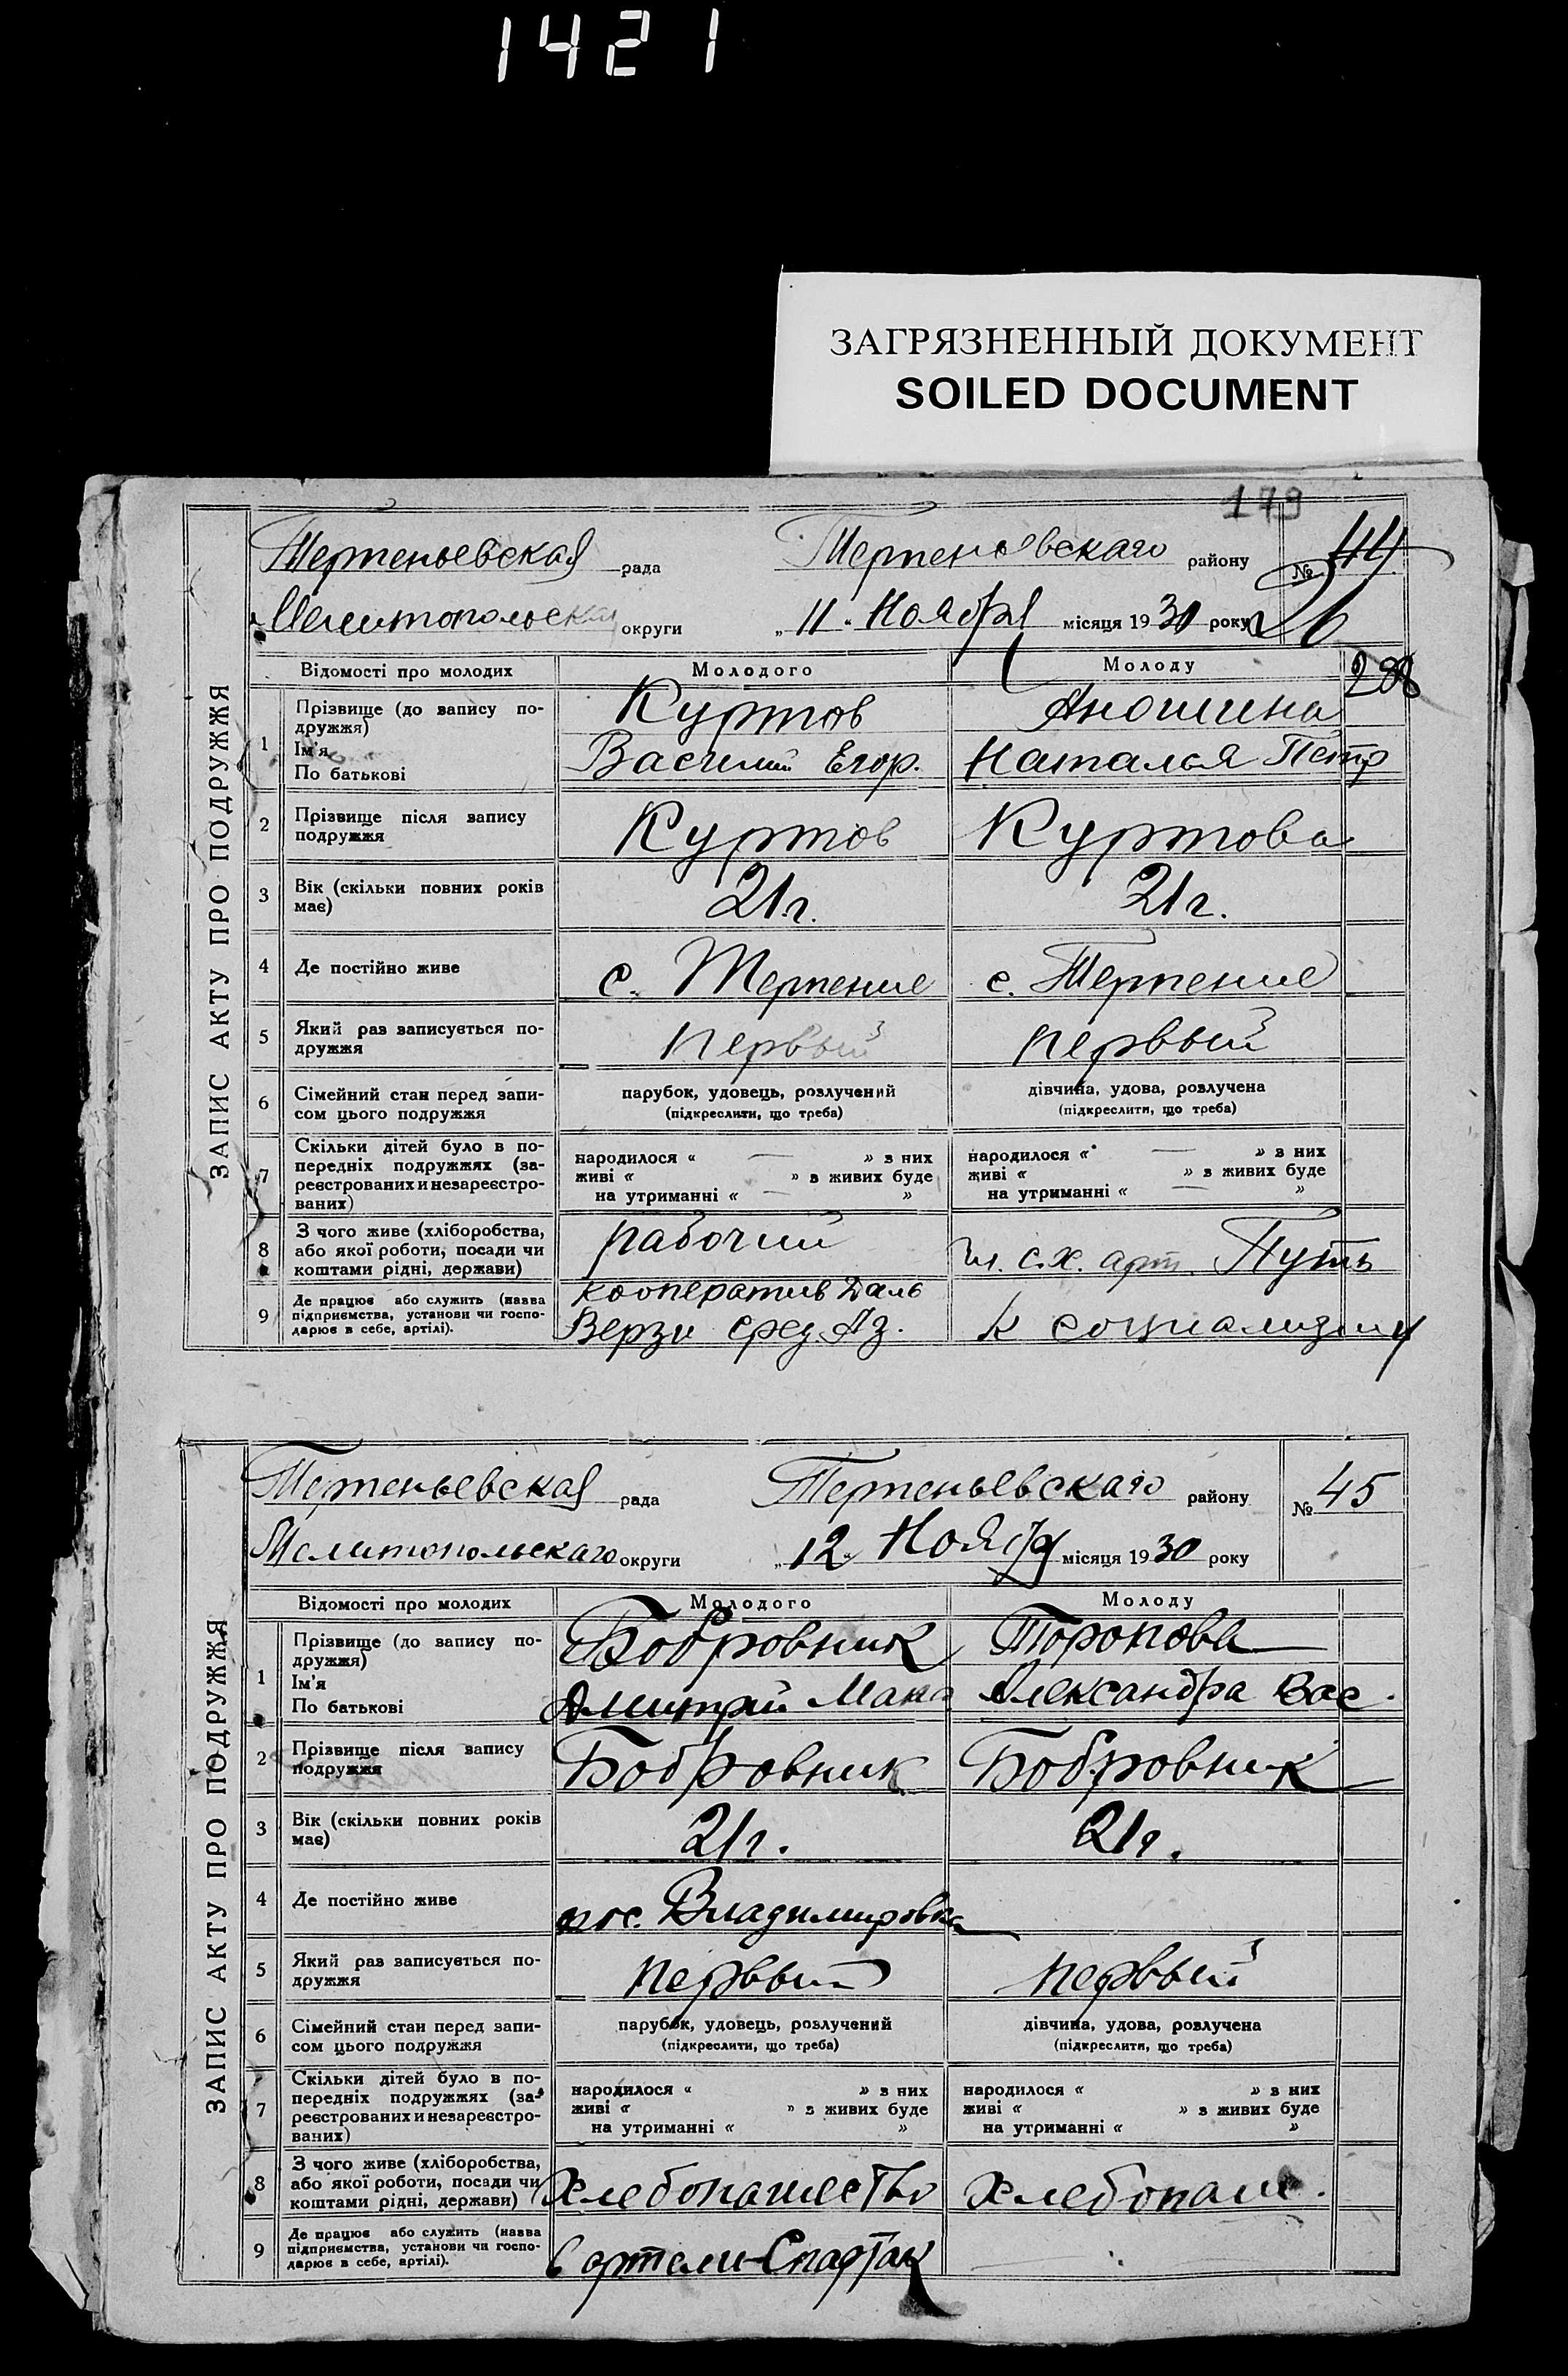 1421
ЗАГРЯЗНЕННЫЙ ДОКУМЕНТ
SOILED DOCUMENT
179
ЗАПИС АКТУ ПРО ПОДРУЖЖЯ
Терпеньевская рада Терпеньевскаго району № 44
Мелитопольская округи „11" Ноября місяця 1930 року 26
Відомості про молодих Молодого Молоду 288
1 Прізвище (до запису по-
дружжя) Куртов Аношина
Ім'я
По батькові Василий Егор. Наталья Петр
2 Прізвище після запису
подружжя Куртов Куртова
3 Вік (скільки повних років
має) 21 г. 21 г.
4 Де постійно живе с. Терпение с. Терпение
5 Який раз записується по-
дружжя первый первый
6 Сімейний стан перед запи-
сом цього подружжя
парубок, удовець, розлучений дівчина, удова, розлучена
(підкреслити, що треба) (підкреслити, що треба)
7 Скільки дітей було в по-
передніх подружжях (за-
реєстрованих и незареєстро-
ваних)
народилося « — » з них народилося « — » з них
живі « » з живих буде живі « » з живих буде
на утриманні « — » на утриманні « — »
8 З чого живе (хліборобства,
або якої роботи, посади чи
коштами рідні, держави) рабочий чл. с.х. арт. Путь
9 Де працює або служить (назва
підприємства, установи чи госпо-
дарює в себе, артілі).
кооператив Даль
Верзи сред. Аз. к социализму
ЗАПИС АКТУ ПРО ПОДРУЖЖЯ
Терпеньевская рада Терпеньевскаго району № 45
Мелитопольскаго округи „12" Ноября місяця 1930 року
Відомості про молодих Молодого Молоду
1 Прізвище (до запису по-
дружжя) Бобровник Торопова
Ім'я
По батькові Дмитрий Александра Вас.
2 Прізвище після запису
подружжя Бобровник Бобровник
3 Вік (скільки повних років
має) 21 г. 21 г.
4 Де постійно живе пос. Владимировка
5 Який раз записується по-
дружжя первый первый
6 Сімейний стан перед запи-
сом цього подружжя
парубок, удовець, розлучений дівчина, удова, розлучена
(підкреслити, що треба) (підкреслити, що треба)
7 Скільки дітей було в по-
передніх подружжях (за-
реєстрованих и незареєстро-
ваних)
народилося « » з них народилося « » з них
живі « » з живих буде живі « » з живих буде
на утриманні « » на утриманні « »
8 З чого живе (хліборобства,
або якої роботи, посади чи
коштами рідні, держави) Хлебопашество Хлебопаш.
9 Де працює або служить (назва
підприємства, установи чи госпо-
дарює в себе, артілі). в артели-Спартак